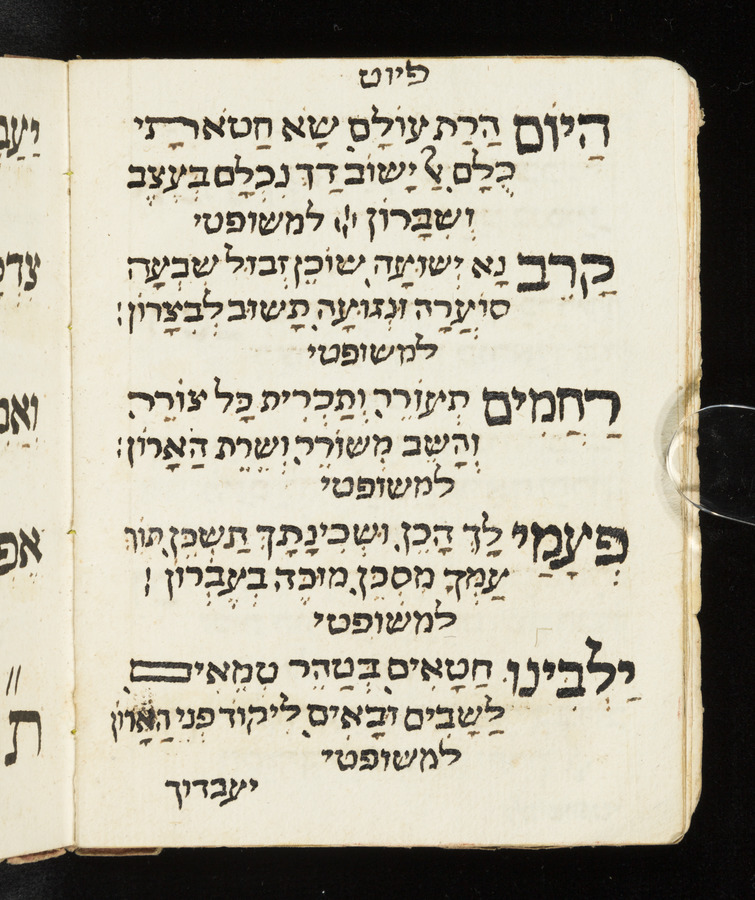 פיוט
הַיּוֹם הֲרַת עוֹלָם שָׂא חַטֹּאתַי
כֻּלָּם אַל יָשׁוֹב דַּךְ נִכְלָם בְּעֶצֶב
וְשִׁבָּרוֹן למשופטי
קָרֵב נָא יְשׁוּעָה שׁוֹכֵן זְבוּל שִׁבְעָה
סוֹעֲרָה וּנְגוּעָה תָּשׁוּב לְבִצָּרוֹן:
למשופטי
רַחֲמִים תְּעוֹרֵר וְתַכְרִית כָּל צוֹרֵר
וְהָשֵׁב מְשׁוֹרֵר וְשָׁרֵת הָאָרוֹן:
למשופטי
פְּעָמַי לָךְ הָכֵן וּשְׁכִינָתָךְ תַּשְׁכֵּן תּוֹךְ
עַמְּךָ מִסְכֵּן מוּכֶּה בְּעִבְּרוֹן:
למשופטי
יַלְבִּינוּ חֲטָאִים בְּטַהֵר טְמֵאִים
לַשָּׁבִים וּבָאִים לִיקוֹד פְּנֵי הָאָרוֹן
למשופטי
יעבדוך
יַעַ
צִדְ
וְאַ
אֲפִ
ת